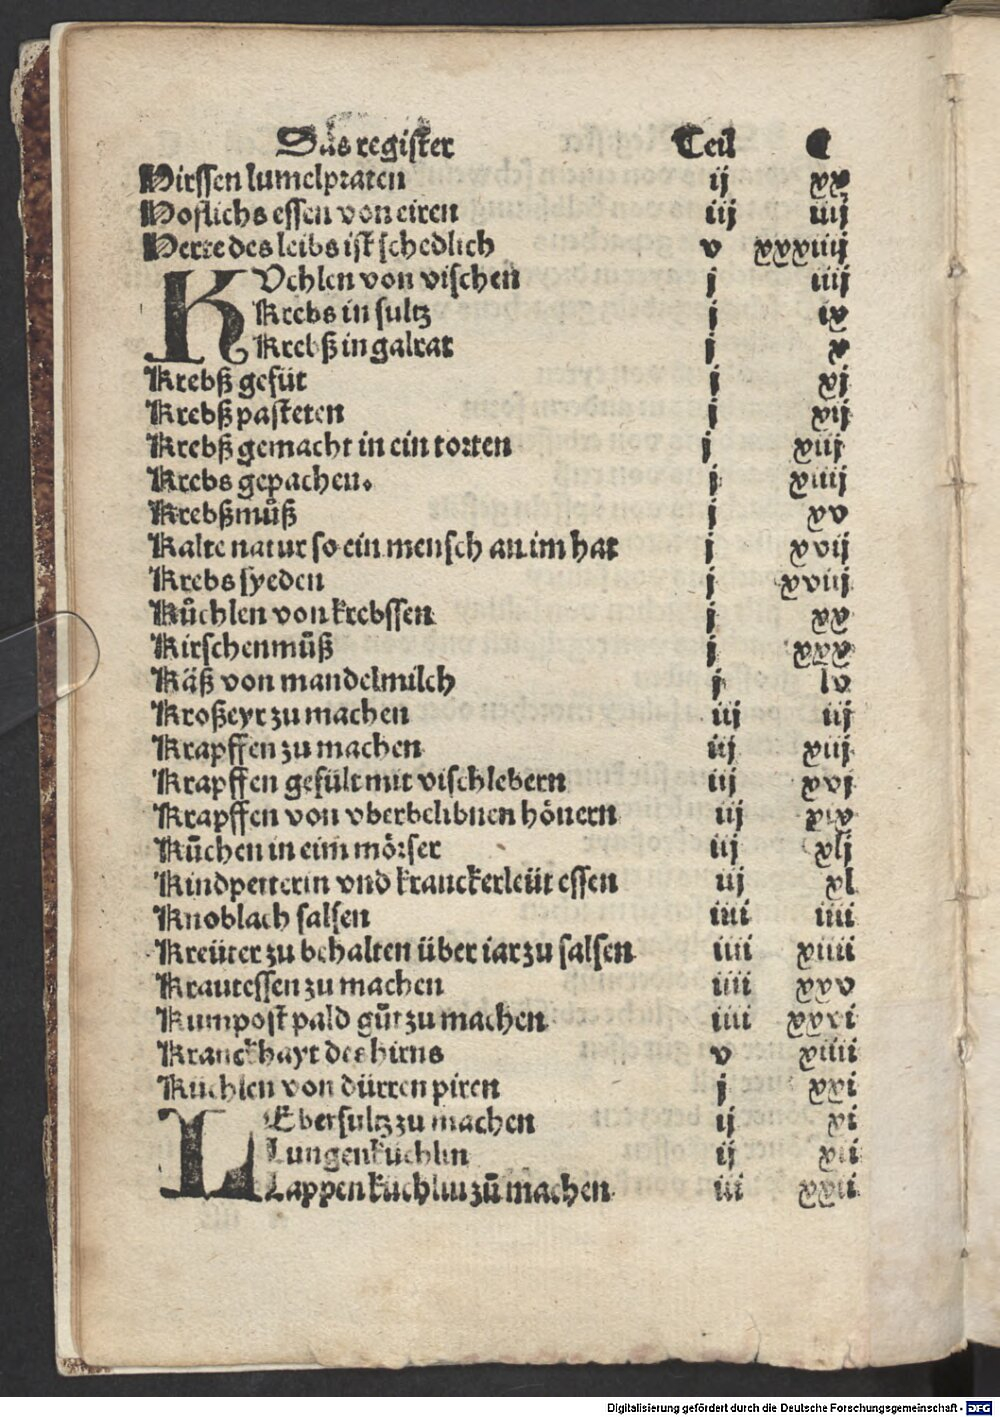 Das register Teil
Hirssen lumelpraten ij xx
Hoflichs essen von eiren iij iiij
Herre des leibs ist schedlich v xxxiiij
KVchlen von vischen j iiij
Krebs in sultz j ix
Krebß in galrat j x
Krebß gefüt j xj
Krebß pasteten j xij
Krebß gemacht in ein torten j xiij
Krebs gepachen. j xiiij
Krebßmuͦß j xv
Kalte natur so ein mensch an im hat j xvij
Krebs syeden j xviij
Kuͤchlen von krebssen j xx
Kirschenmuͦß j xxx
Käß von mandelmilch j lv
Kroßeyr zu machen iij iij
Krapffen zu machen iij xiij
Krapffen gefült mit vischlebern iij xvj
Krapffen von vberbelibnen hönern iij xix
Kuͤchen in eim mörser iij xlj
Kindpetterin vnd kranckerleüt essen iij xl
Knoblach salsen iiii iiii
Kreüter zu behalten über iar zu salsen iiii xiiii
Krautessen zu machen iiii xxv
Kumpost pald guͦt zu machen iiii xxvi
Kranckhayt des hirns v xiiii
Küchlen von dürren piren j xxi
LEbersultz zu machen ij xi
Lungenkuchlin ij xii
Lappen kuchlin zuͦ machen iii xxii
Digitalisierung gefördert durch die Deutsche Forschungsgemeinschaft - DFG